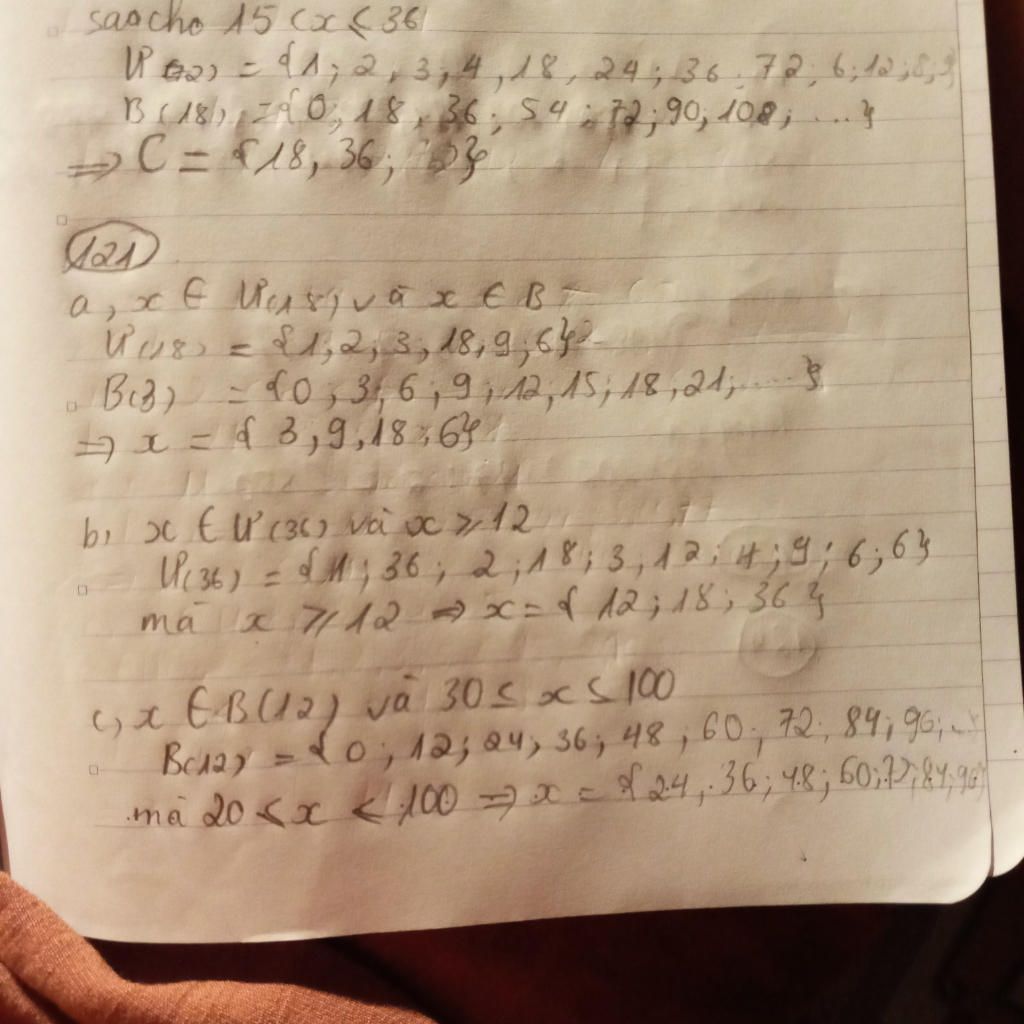 sao cho 15 < x ≤ 36
Ư(72) = {1; 2, 3; 4, 18, 24; 36, 72, 6; 12; 8, 9
B(18) = {0, 18, 36; 54; 72; 90; 108; ...}
=> C = {18, 36; }
121
a, x ∈ Ư(18) và x ∈ B
Ư(18) = {1, 2; 3, 18, 9; 6}
B(3) = {0; 3; 6; 9; 12, 15; 18, 21, ....}
=> x = { 3, 9, 18; 6}
b, x ∈ Ư(36) và x ≥ 12
Ư(36) = {1; 36; 2; 18; 3, 12; 4; 9; 6; 6}
mà x ≥ 12 => x = { 12; 18; 36 }
c, x ∈ B(12) và 30 ≤ x ≤ 100
B(12) = { 0; 12; 24; 36; 48; 60; 72; 84; 96; ...
mà 20 ≤ x ≤ 100 => x = {24, 36; 48; 60; 72; 84; 96}